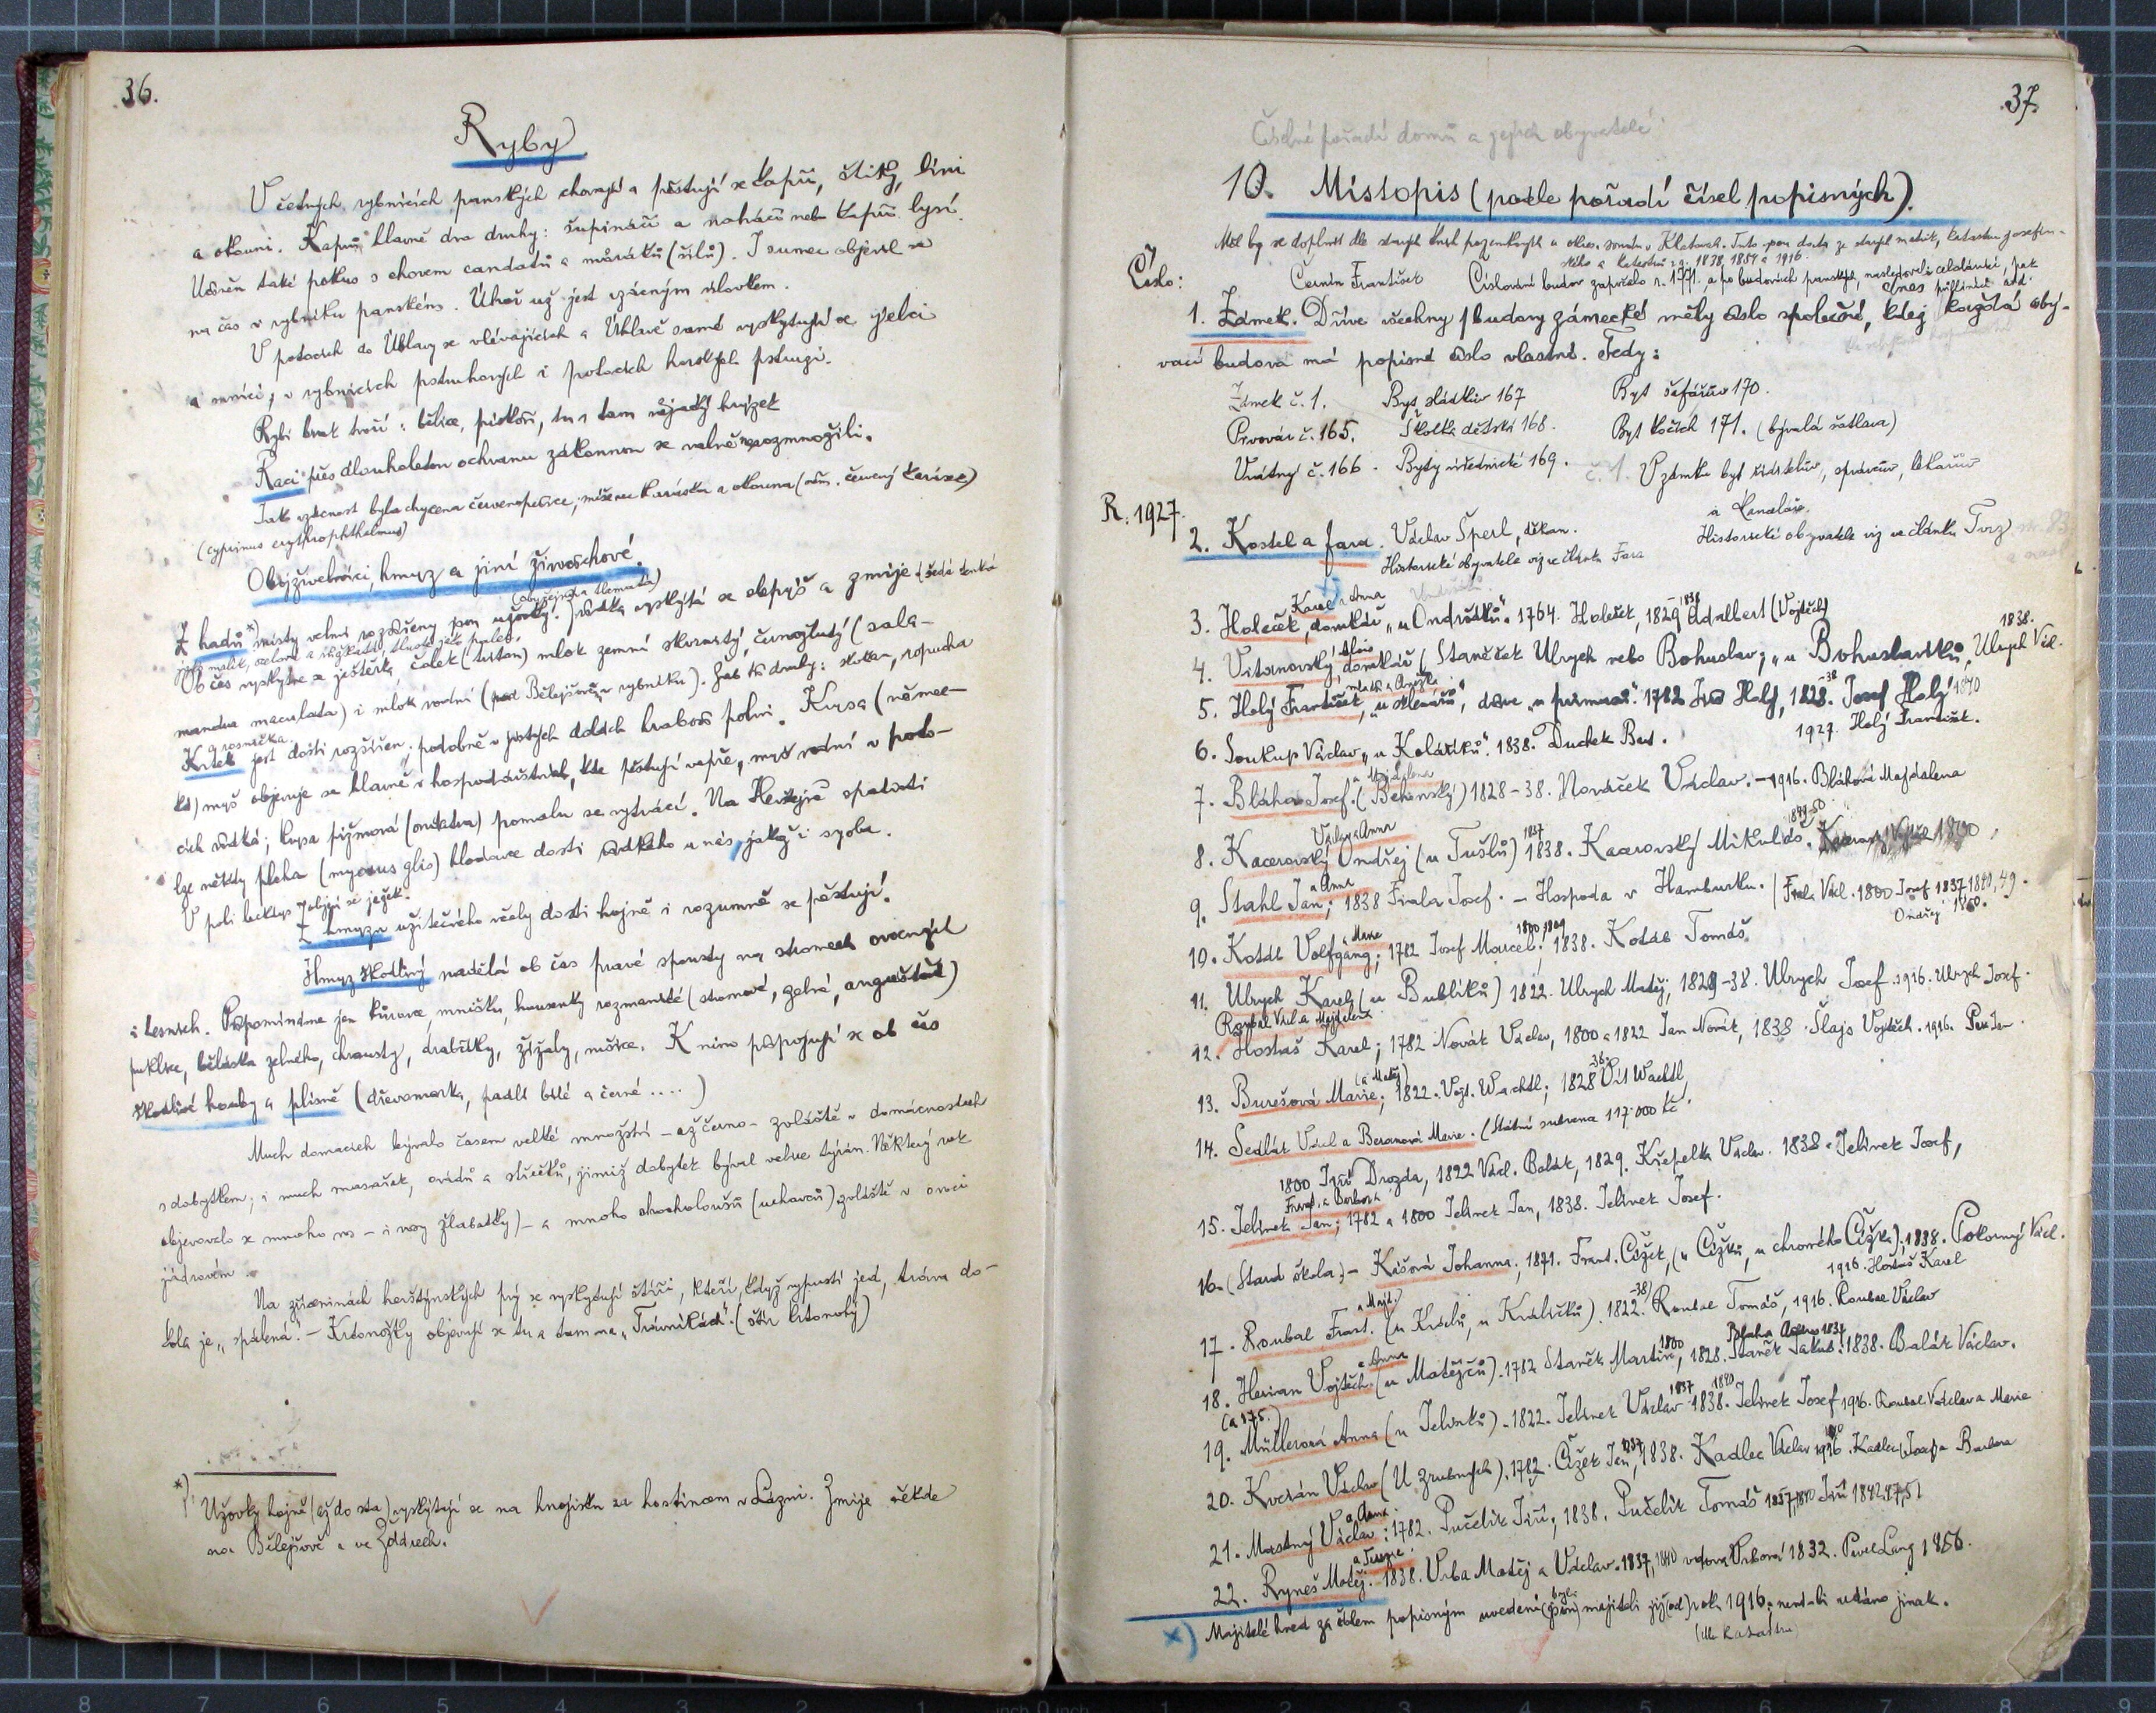 36.
Ryby
V četných rybnících panských chovají a pěstují se kapři, štiky, líni
a okouni. Kaprů hlavně dva druhy: šupináči a naháči neb kapři lysí.
Učiněn také pokus s chovem candátů a mařáků (sihů). I sumec objevil se
na čas v rybníku panském. Úhoř už jest vzácným úlovkem.
V potocích do Úhlavy se vlévajících a Úhlavě samé vyskytují se jelci
a mníci, v rybnících pstruhových i potocích horských pstruzi.
Rybí brak tvoří: bělice, piskoři, tu a tam nějaký hrýzek
Raci přes dlouholetou ochranu zákonnou se valně nerozmnožili.
Jako vzácnost byla chycena červenopeřice, míšenec karáska a okouna (něm. červený karas)
(cyprinus erythrophthalmus)
Obojživelníci, hmyz a jiní živočichové.
(obyčejná a hladká)
Z hadů *) místy velmi rozšířeny jsou užovky. Zřídka vyskytá se slepýš a zmije (šedá tenká
Ob čas vyskytne se ještěrka, čolek (triton) mlok zemní skvrnitý, černožlutý (sala-
mandra maculata) i mlok vodní (pod Bělejšově v rybníku). Žab tři druhy: skokan, ropucha
a rosnička.
Krtek jest dosti rozšířen; podobně v jistých dobách hraboši polní. Krysa (německá)
myš objevuje se hlavně v hospodářstvích, kde pěstují vepře, myš vodní v poto-
cích řídká; krysa pižmová (ondatra) pomalu se vytrácí. Na Herštejně spatřiti
lze někdy plcha (myoxus glis) hlodavce dosti řídkého u nás, jakož i sysla.
V poli leckdys objeví se ježek.
Z hmyzu užitečného včely dosti hojně i rozumně se pěstují.
Hmyz škodlivý nadělá ob čas pravé spousty na stromech ovocných
i lesních. Připomínáme jen kůrovce, mnišku, housenky rozmanité (stromové, zelné, angreštové)
puklice, běláska zelného, chrousty, drabčíky, žížaly, mšice. K nim připojují se ob čas
škodlivé houby a plísně (dřevomorka, padlí bílé a černé ....)
Much domácích bývalo časem velké množství - až černo - zvláště v domácnostech
s dobytkem; i much masařek, ovádů a střečků, jimiž dobytek býval velice týrán. Některý rok
objevovalo se mnoho vos - i vosy žlabatky) - a mnoho chocholoušů (ucháčů) zvláště v ovoci
jádrovém.
Na zříceninách herštýnských prý se vyskytují štíři, kteří, když vypustí jed, tráva do-
kola je „spálena". - Krtonožky objevují se tu a tam na „Trávníkách". (štír krtonohý)
*) Užovky hojně (až do sta) vyskýtají se na hnojisku za hostincem v Lázni. Zmije někde
na Bělejšově a ve Žďárech.
37.
Číselné pořadí domů a jejich obyvatelé
10. Místopis (podle pořadí čísel popisných).
Měl by se doplniti dle starých knih pozemkových u okres. soudu v Klatovech. Tuto jsou data ze starých matrik, katastru josefin-
ského a katastrů z r. 1838, 1854 a 1916.
Číslo:
Černín František Číslování budov započalo r. 1771. a po budovách panských, následovali celoláníci, pak půlláníci atd.
1. Zámek. Dříve všechny budovy zámecké měly číslo společné, kdež dnes každá obý-
vací budova má popisné číslo vlastní. Tedy:
Zámek č. 1. Byt sládkův 167 Byt šafářův 170.
Pivovár č. 165. Školka dětská 168. Byt kočích 171. (bývalá šatlava)
Vrátný č. 166. Byty úřednické 169. č. 1. V zámku byt ředitelův, správcův, lékařův
a kancelář.
R. 1927.
2. Kostel a fara. Václav Šperl, děkan. Historické obyvatele viz ve článku Tvrz
Historické obyvatele viz ve článku Fara
Karel a Anna
3. Holeček, domkář „u Ondrášků". 1764. Holeček, 1829-1838 Adalbert (Vojtěch)
Alois
4. Vitanovský, domkář (Staněček Ulrych nebo Bohuslav; „u Bohuslavků", Ulrych Vác. 1838.
5. Holý František, „u sklenářů", dříve „u 1782 Jiří Holý, 1828-38. Josef Holý 1840
1927. Holý František.
6. Soukup Václav „u Kolářků". 1838. Dudek Bart.
a Majdalena
7. Bláha Josef. (Běhonský) 1828-38. Nováček Václav. - 1916. Bláhová Majdalena
Václav a Anna
8. Kacerovský Ondřej (u Tušlů) 1837 1838. Kacerovský Mikuláš. 1849-50 Kacerovský Vojtěch 1840
a Anna
9. Stahl Jan; 1838 Fiala Josef. - Hospoda v Hamburku. / Fiala Václ. 1800 Josef 1837, 1840, 49.
Ondřej 1850.
a Marie
10. Kotáb Volfgang; 1782 Josef Marcel; 1800, 1809 1838. Kotáb Tomáš
11. Ulrych Karel (u Bublíků) 1822. Ulrych Matěj, 1829-38. Ulrych Josef. 1916. Ulrych Josef.
Roubal Václ. a Majdalena
12. Hostaš Karel; 1782 Novák Václav, 1800 a 1822 Jan Novák, 1838. Šlajs Vojtěch. 1916.
(a Matěj)
13. Burešová Marie; 1822. Vojt. Wachtl; 1828-38. Vít Wachtl,
14. Sedlák Václ. a Beranová Marie. (Státní subvence 117.000 Kč.
1800 Jiří Drozda, 1822 Václ. Balák, 1829. Křepelka Václav. 1838. Jelínek Josef,
Frant. a Barbora
15. Jelínek Jan; 1782 a 1800 Jelínek Jan, 1838. Jelínek Josef.
16. (Stará škola) - Kášová Johanna; 1871. Frant. Čížek, (u Čížků, u chromého Čížka); 1838. Pokorný Václ.
1916. Hostaš Karel
a Majd.
17. Roubal Frant. (u Králů, u Králíčků). 1822.-38) Roubal Tomáš, 1916. Roubal Václav
a Anna
18. Herian Vojtěch. (u Matějčů). 1782 Staněk Martin, 1800 1828. Staněk Jakub. 1838. Balák Václav.
(a 175.)
19. Müllerová Anna (u Jelínků). 1822. Jelínek Václav 1837 1838. 1840 Jelínek Josef 1916. Roubal Václav a Marie
20. Kvičán Václav (U zrubných). 1782. Čížek Jan, 1837 1838. Kadlec Václav 1916. Kadlec Josef a Barbora
a Anna
21. Mastný Václav: 1782. Pučelík Jiří, 1838. Pučelík Tomáš 1837, 1840 Jiří 1842, 47, 51
a Terezie
22. Ryneš Matěj. 1838. Vrba Matěj a Václav. 1837, 1840 vdova Vrbová 1832. Pavel Lang 1856.
x) Majitelé hned za číslem popisným uvedení (jsou) byli majiteli již (od) rok 1916; není-li udáno jinak.
(dle katastru)